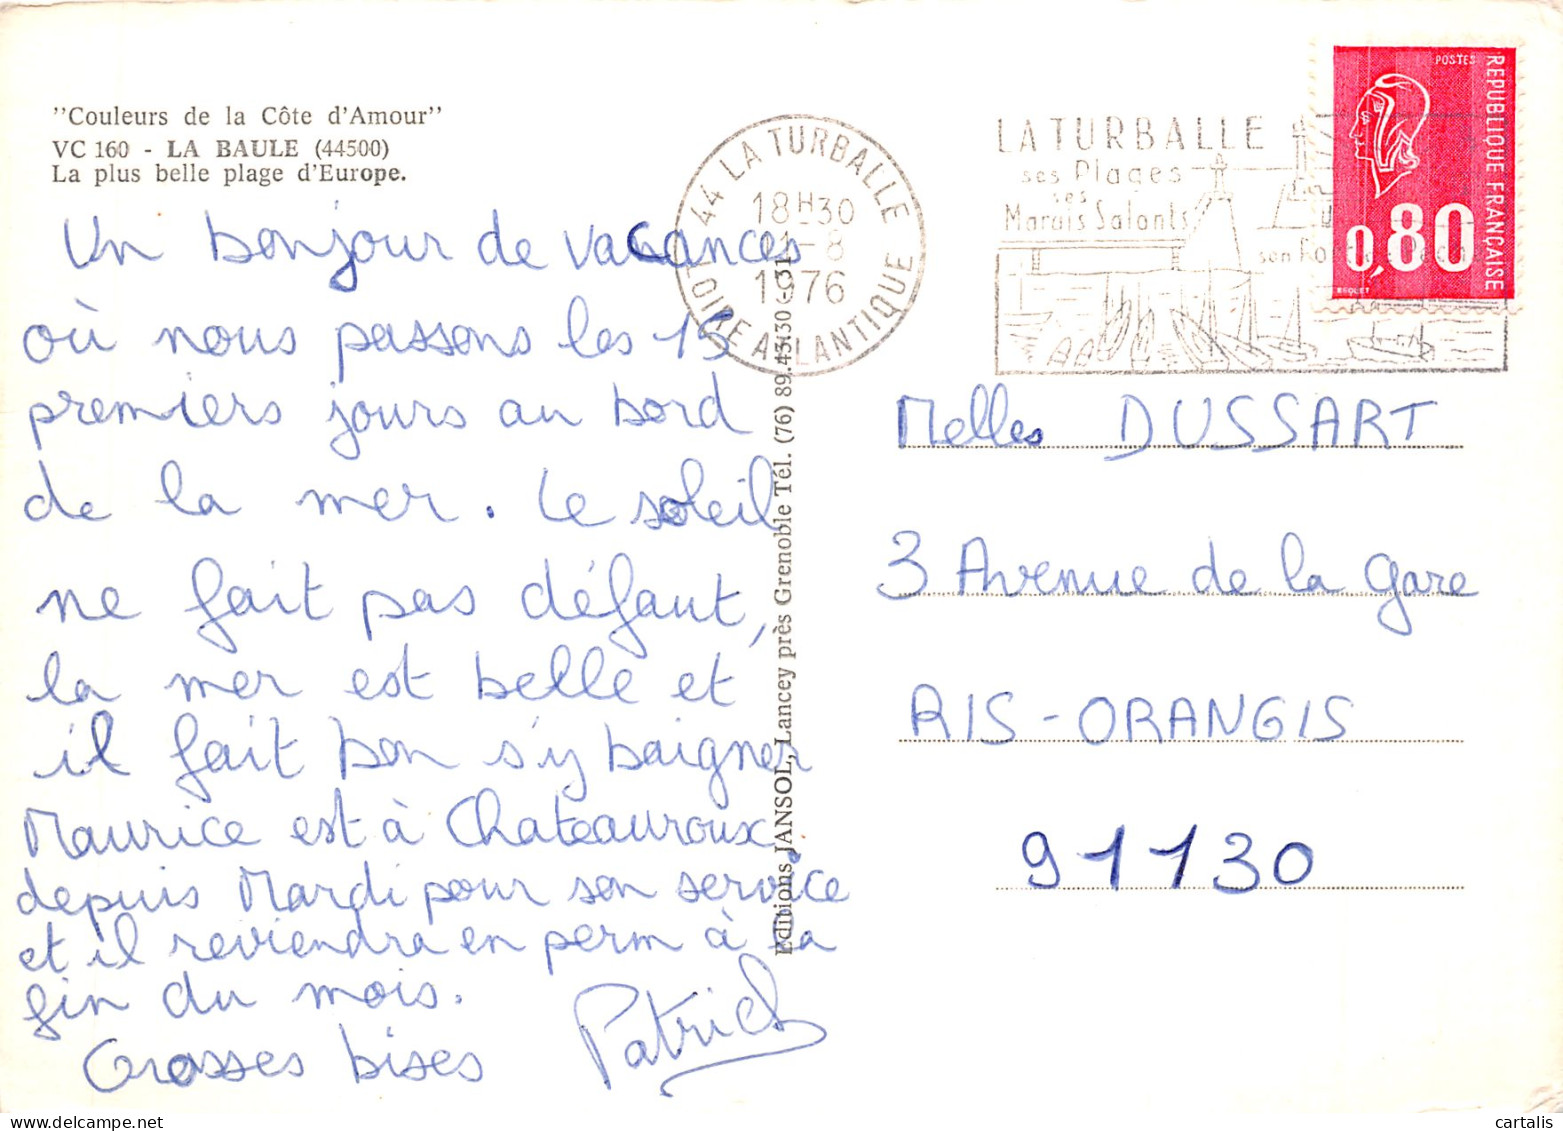 "Couleurs de la Côte d'Amour"
VC 160 - LA BAULE (44500)
La plus belle plage d'Europe.
Un bonjour de vacances
où nous passons les 15
premiers jours au bord
de la mer. Le soleil
ne fait pas défaut,
la mer est belle et
il fait bon s'y baigner
Maurice est à Chateauroux
depuis Mardi pour son service
et il reviendra en perm à la
fin du mois.
Grosses bises
Patrick
Editions JANSOL, Lancey près Grenoble Tél. (76) 89.43.30 - 31
44 LA TURBALLE
18H30
-8
1976
LOIRE ATLANTIQUE
LA TURBALLE
ses Plages
ses
Marais Salants
son
POSTES
REPUBLIQUE FRANÇAISE
0,80
BEQUET
Melles DUSSART
3 Avenue de la Gare
RIS-ORANGIS
91130
cartalis